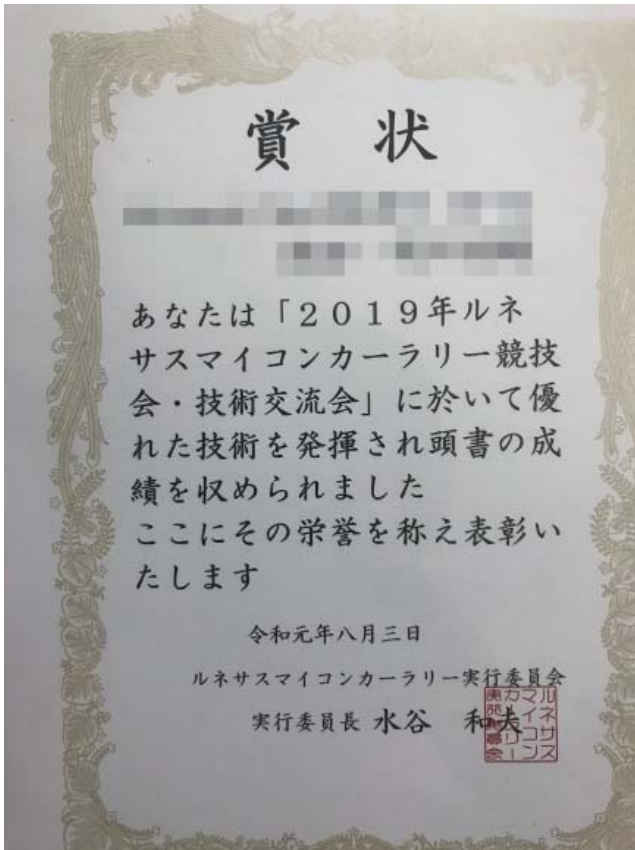 賞 状
あなたは「2019年ルネ
サスマイコンカーラリー競技
会・技術交流会」に於いて優
れた技術を発揮され頭書の成
績を収められました
ここにその栄誉を称え表彰い
たします
令和元年八月三日
ルネサスマイコンカーラリー実行委員会
実行委員長 水谷 和夫
ルネサス
マイコン
カーラリー
実行委員会